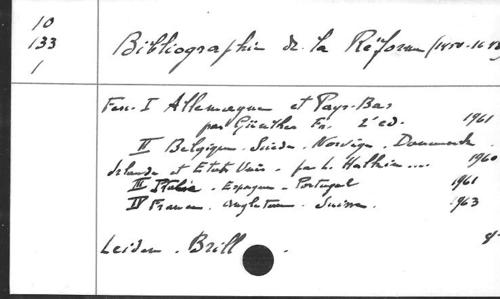 10
133
1
Bibliographie de la Réforme (1450-1648)
Fasc. I Allemagne et Pays-Bas
par Günther Fr. 2e éd. 1961
II Belgique. Suède. Norvège. Danemark.
Irlande et Etats Unis. par L. Halkin... 1960
III Italie. Espagne. Portugal 1961
IV France. Angleterre. Suisse. 1963
Leiden. Brill.